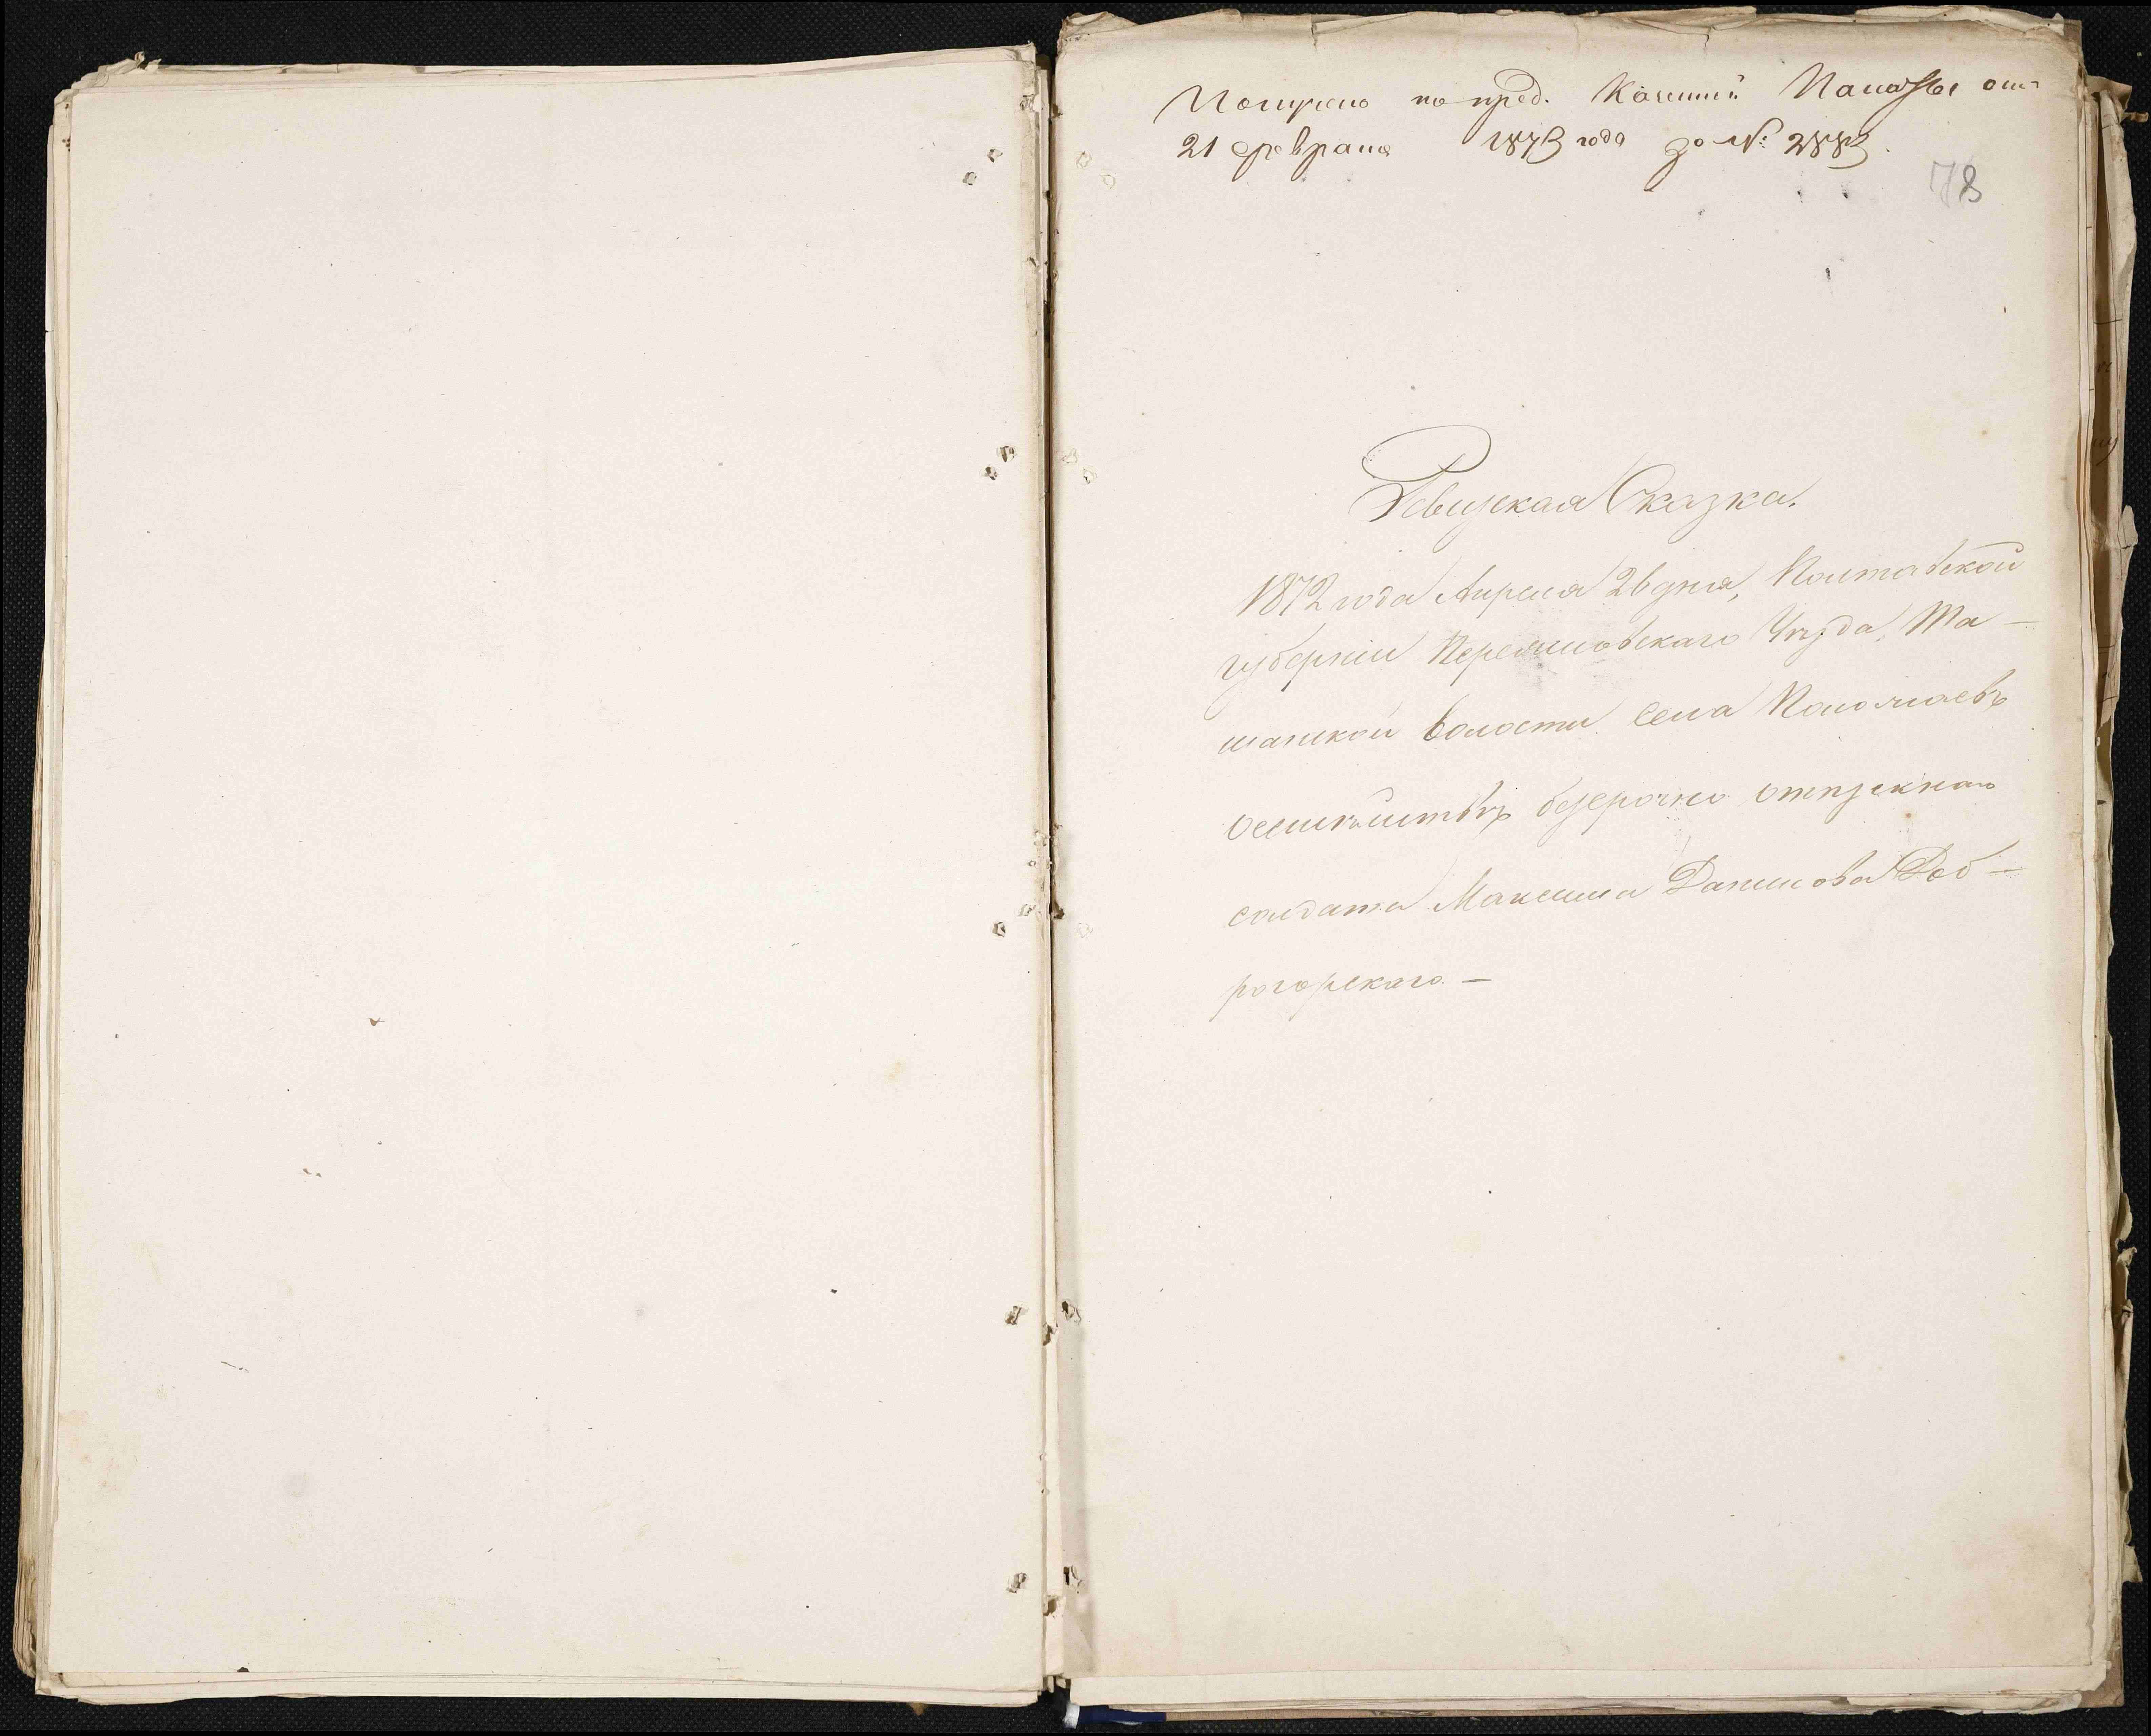 Получено при пред. Казенной Палаты отъ
21 февраля 1873 года за №: 2883.
78
Ревизская Сказка.
1872 года Апреля 26 дня, Полтавской
губерніи Переяславскаго Уѣзда, Та-
шанской волости села Положаевъ
семействѣ безсрочно отпускнаго
солдата Максима Данилова Доб-
рогорскаго. —